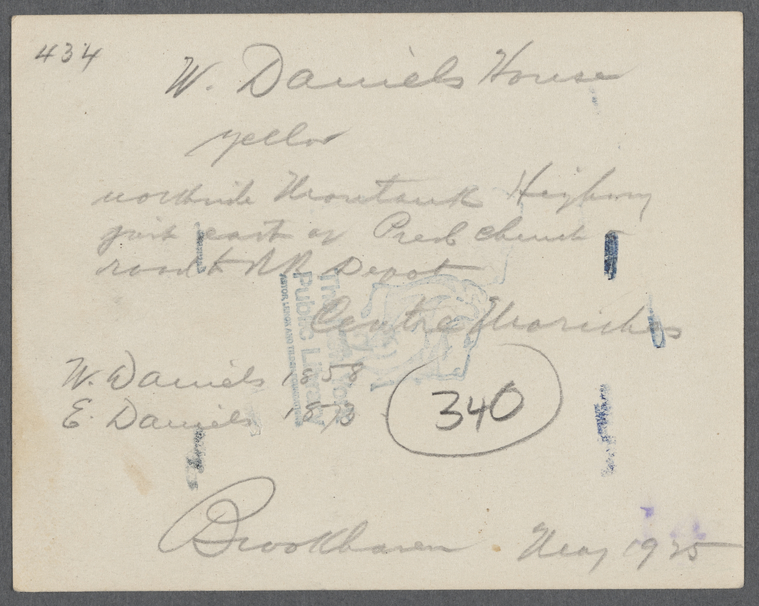 434
W. Daniels House
yellow
northside Montauk Highway
just east of Presb church
road to RR Depot
Centre Moriches
W. Daniels 1858
E. Daniels 1873
340
Brookhaven. May 1925
The New York
Public Library